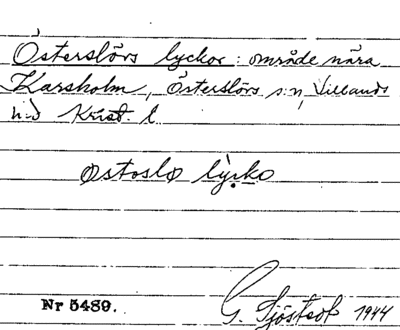 Österslövs lyckor: område nära
Karsholm, Österslövs s:n, Villands
h:d Krist. l.
ostoslø lyckø
Nr 5489.
G. Sjöstedt 1944